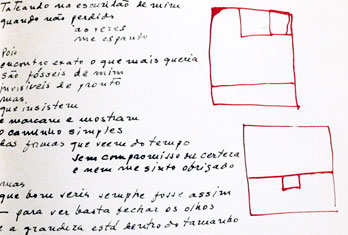 Tateando na escuridão de mim
quando não perdido
as vezes
me espanto
Pois
encontro exato o que mais queria
são fósseis de mim
invisíveis de pronto
mas
que insistem
e marcam e mostram
o caminho simples
das formas que veem do tempo
sem compromisso ou certeza
e nem me sinto obrigado
mas
que bom seria sempre fosse assim
— para ver basta fechar os olhos
e a grandeza está dentro do tamanho